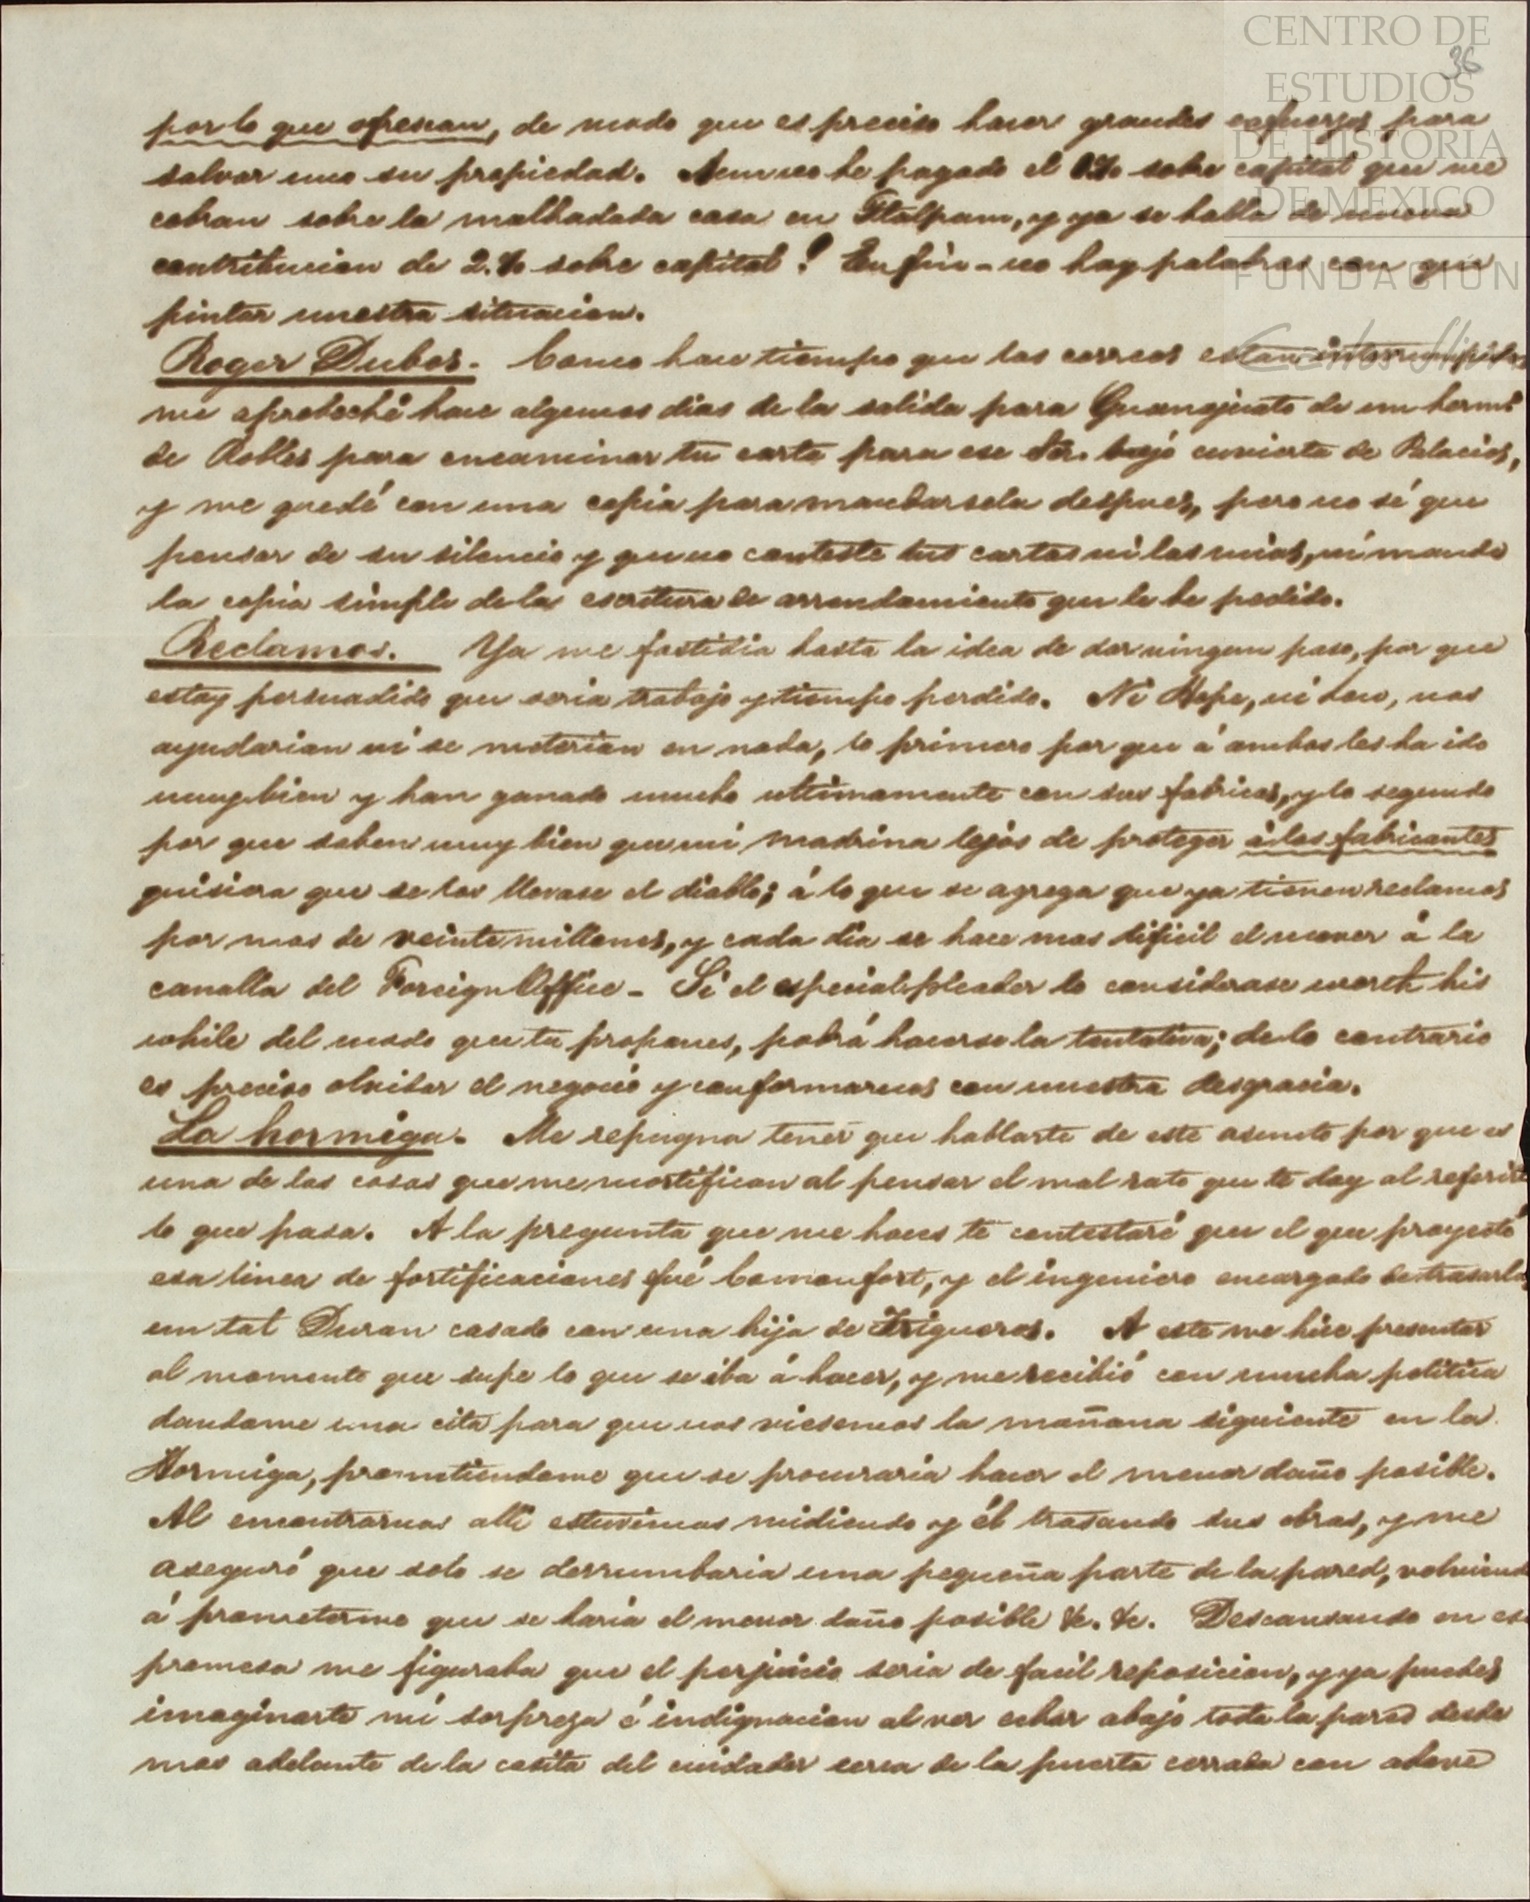 CENTRO DE
ESTUDIOS
DE HISTORIA
DE MEXICO
FUNDACION
36
por lo que ofrescan, de modo que es preciso hacer grandes esfuerzos para
salvar uno su propiedad. Aun no he pagado el 1% sobre capital que me
cobran sobre la malhadada casa en Tlalpam, y ya se habla de nueva
contribucion de 2.% sobre capital! En fin - no hay palabras con que
pintar nuestra situacion.
Roger Dubos. Como hace tiempo que los correos estan interrumpidos
me aprobeché hace algunos dias de la salida para Guanajuato de un herm.o
de Robles para encaminar tu carta para ese Sor. bajó cuvierta de Palacios,
y me quedé con una copia para mandarsela despues, pero no sé que
pensar de su silencio y que no conteste tus cartas ni las mias, ni mande
la copia simple de la escritura de arrendamiento que le he pedido.
Reclamos. Ya me fastidia hasta la idea de dar ningun paso, por que
estoy persuadido que seria trabajo y tiempo perdido. Ni Hope, ni, nos
ayudarian ni se meterian en nada, lo primero por que á ambos les ha ido
muy bien y han ganado mucho ultimamente con sus fabricas, y lo segundo
por que saben muy bien que mi madrina lejos de proteger á los fabricantes
quisiera que se los llevase el diablo; á lo que se agrega que ya tienen reclamos
por mas de veinte millones, y cada dia se hace mas dificil el mover á la
canalla del Foreign Office - Si el especial pleader lo considerase worth his
while del modo que tu propones, podrá hacerse la tentativa; de lo contrario
es preciso olvidar el negocio y conformarnos con nuestra desgracia.
La hormiga. Me repugna tener que hablarte de este asunto por que es
una de las cosas que me mortifican al pensar el mal rato que te doy al referirte
lo que pasa. A la pregunta que me haces te contestaré que el que proyectó
esa linea de fortificaciones fué Comonfort, y el ingeniero encargado de trasarlas
un tal Duran casado con una hija de Trigueros. A este me hice presentar
al momento que supe lo que se iba á hacer, y me recibió con mucha politica
dandome una cita para que nos viesemos la mañana siguiente en la
Hormiga, prometiendome que se procuraria hacer el menor daño posible.
Al encontrarnos alli estuvimos midiendo y él trasando sus obras, y me
aseguró que solo se derrumbaria una pequeña parte de la pared, volviendo
á prometerme que se haria el menor daño posible &c. &c. Descansando en esa
promesa me figuraba que el perjuicio seria de facil reposicion, y ya puedes
imaginarte mi sorpreza é indignacion al ver echar abajo toda la pared desde
mas adelante de la casita del cuidador cerca de la puerta cerrada con adove